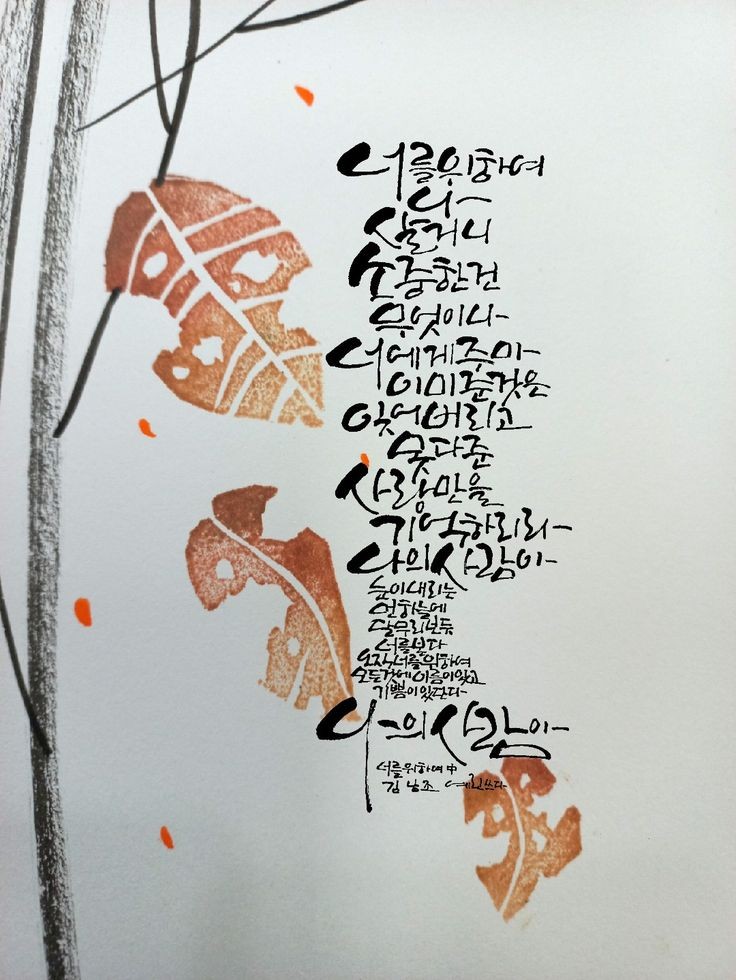 너를위하여
나
살거니
소중한건
무엇이나
너에게주마
이미준것은
잊어버리고
못다준
사랑만을
기억하리라
나의사람아
눈이내리는
먼하늘에
달무리보듯
너를본다
오직너를위하여
모든것에이름이있고
기쁨이있단다
나의사람아
너를위하여 中
김남조 예린쓰다